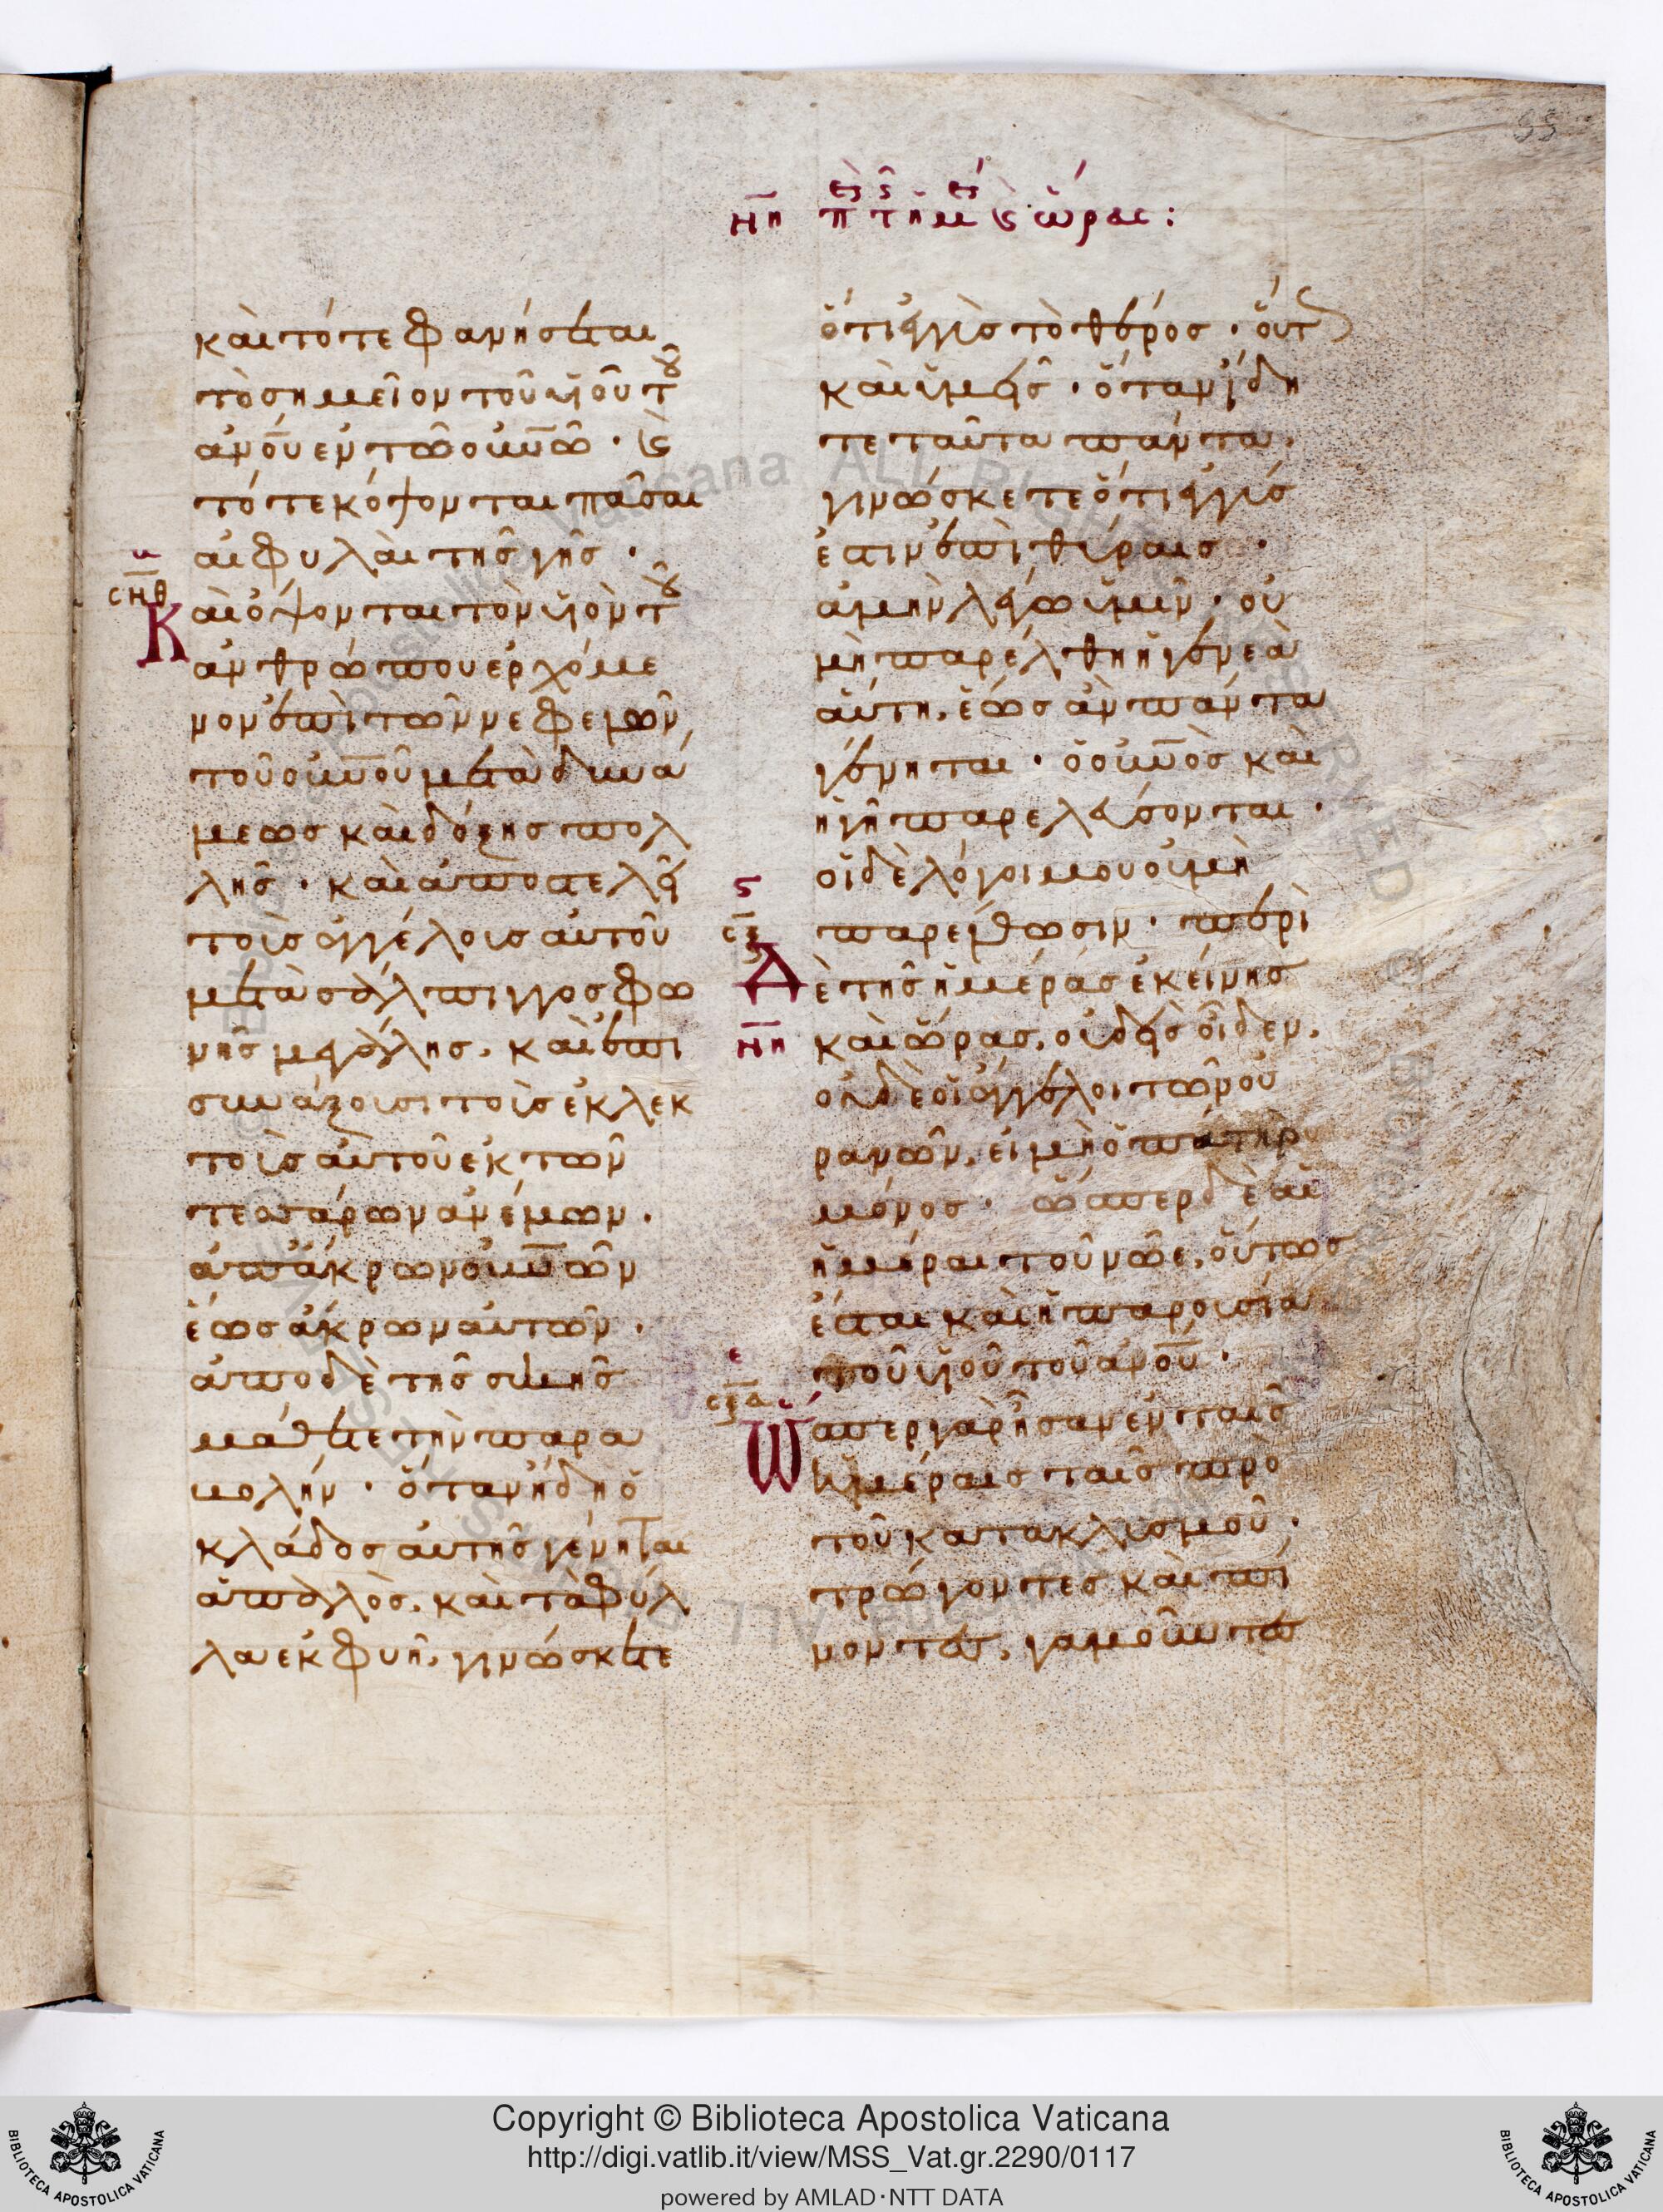 καὶ τότε φανήσεται
τὸ σημεῖον τοῦ υἱοῦ τοῦ
ἀν̅ο̅υ̅ ἐν τῶ ου̅ν̅ῶ · καὶ
τότε κόψονται πᾶσαι
αἱ φυλαὶ τῆς γῆς ·
σμθ
Καὶ ὄψονται τὸν υἱὸν τοῦ
ἀνθρώπου ἐρχόμε
νον ἐπὶ τῶν νεφελῶν
τοῦ ου̅ν̅οῦ μετὰ δυνά
μεως καὶ δόξης πολ
λῆς · καὶ ἀποστελεῖ
τοὺς ἀγγέλους αὐτοῦ
μετὰ σάλπιγγος φω
νῆς μεγάλης, καὶ ἐπι
συνάξουσι τοὺς ἐκλεκ
τοὺς αὐτοῦ ἐκ τῶν
τεσσάρων ἀνέμων ·
ἀπ' ἄκρων ου̅ν̅ῶν
ἕως ἄκρων αὐτῶν ·
ἀπὸ δὲ τῆς συκῆς
μάθετε τὴν παρα
βολήν · ὅταν ἤδη ὁ
κλάδος αὐτῆς γένηται
ἁπαλὸς, καὶ τὰ φύλ
λα ἐκφυῆ, γινώσκετε
ὅτι ἐγγὺς τὸ θέρος · οὕτως
καὶ ὑμεῖς · ὅταν ἴδη
τε ταῦτα πάντα,
γινώσκετε ὅτι ἐγγύς
ἐστιν ἐπὶ θύραις ·
ἀμὴν λέγω ὑμῖν · οὐ
μὴ παρέλθη ἡ γενεὰ
αὕτη, ἕως ἂν πάντα
γένηται · ὁ ου̅ν̅ὸς καὶ
ἡ γῆ παρελεύσονται ·
οἱ δὲ λόγοι μου οὐ μὴ
παρέλθωσιν · περὶ
σξ
Δὲ τῆς ἡμέρας ἐκείνης
καὶ ὥρας, οὐδεὶς οἶδεν,
οὐδὲ οἱ ἄγγελοι τῶν οὐ
ρανῶν, εἰ μὴ ὁ πατὴρ
μόνος · ὥσπερ δὲ αἱ
ἡμέραι τοῦ νῶε, οὕτως
ἔσται καὶ ἡ παρουσία
τοῦ υἱοῦ τοῦ ἀν̅ο̅υ̅ ·
σξα
Ὥσπερ γὰρ ἦσαν ἐν ταῖς
ἡμέραις ταῖς πρὸ
τοῦ κατακλυσμοῦ ·
τρώγοντες καὶ πί
νοντες, γαμοῦντες
Copyright © Biblioteca Apostolica Vaticana
http://digi.vatlib.it/view/MSS_Vat.gr.2290/0117
powered by AMLAD·NTT DATA
BIBLIOTECA APOSTOLICA VATICANA
BIBLIOTECA APOSTOLICA VATICANA